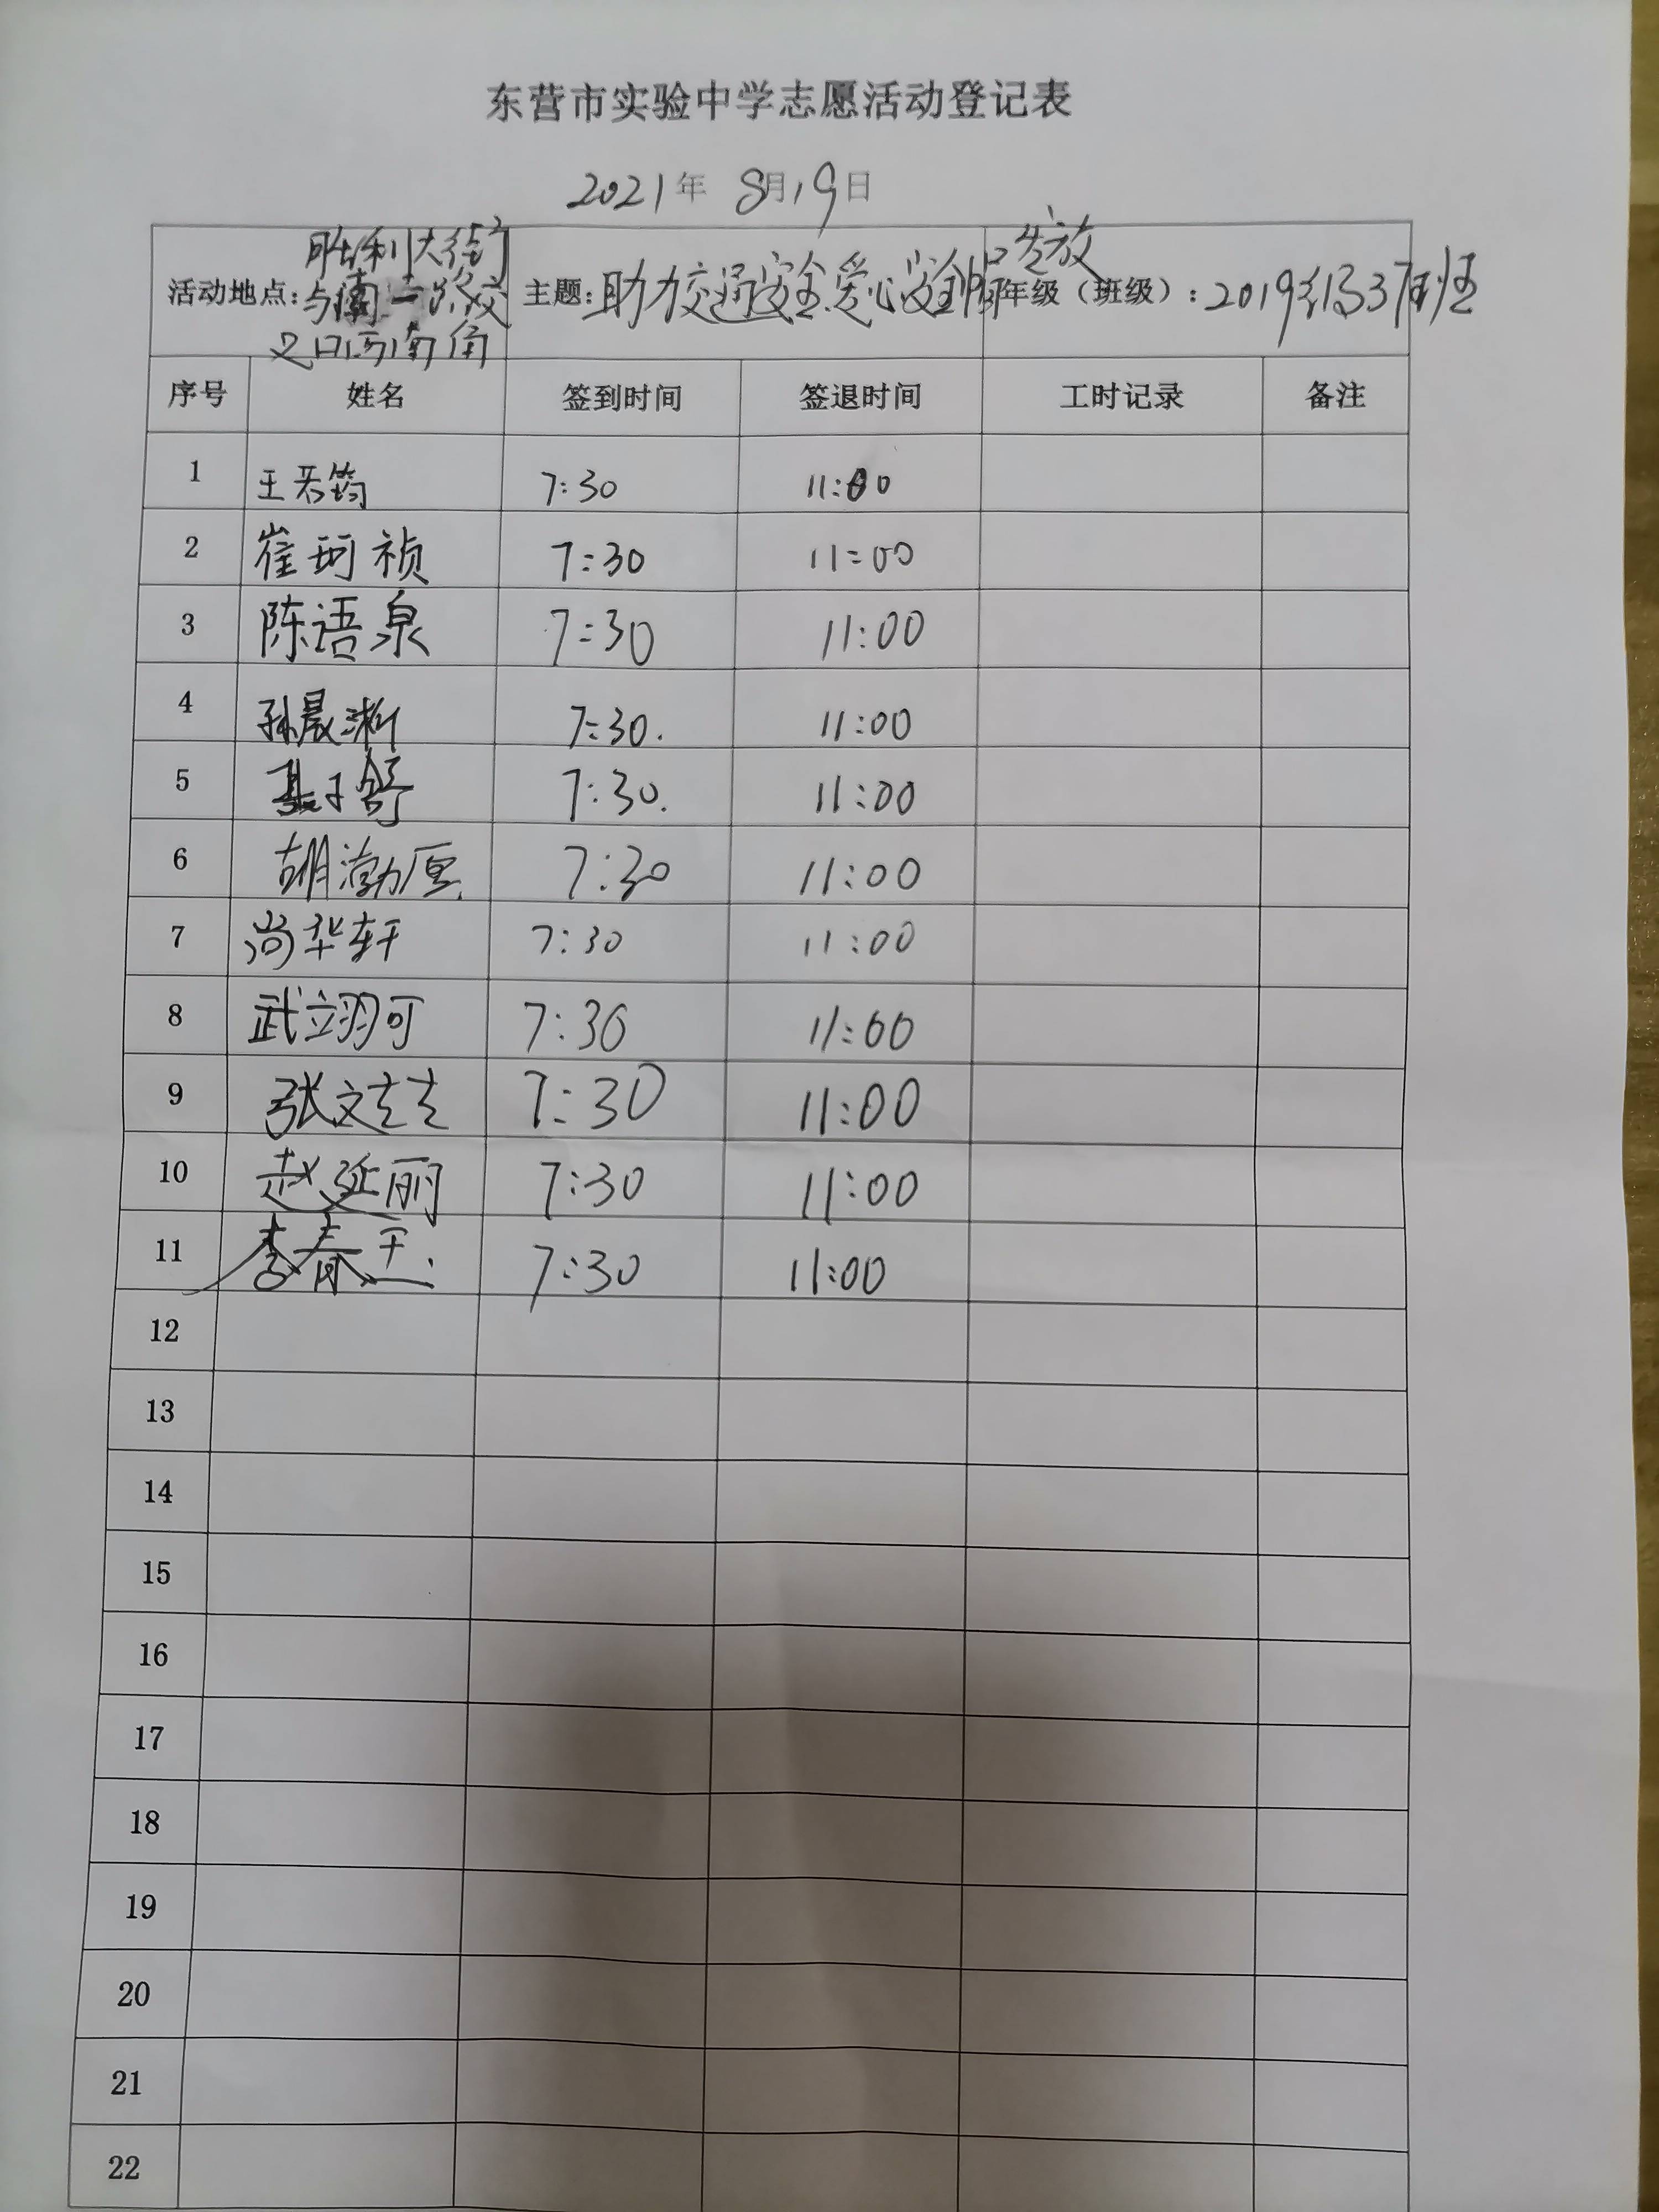 东营市实验中学志愿活动登记表
2021年 8月19日
活动地点: 胜利大街与南二路交叉口西南角 主题: 助力交通安全.爱心安全帽发放 年级（班级）: 2019级37班
序号 姓名 签到时间 签退时间 工时记录 备注
1 王若筠 7:30 11:00
2 崔珂祯 7:30 11:00
3 陈语泉 7:30 11:00
4 孙晨淅 7:30. 11:00
5 綦子舒 7:30. 11:00
6 胡渤原 7:30 11:00
7 尚华轩 7:30 11:00
8 武立翊可 7:30 11:00
9 张文喆 7:30 11:00
10 赵延丽 7:30 11:00
11 李春 7:30 11:00
12
13
14
15
16
17
18
19
20
21
22